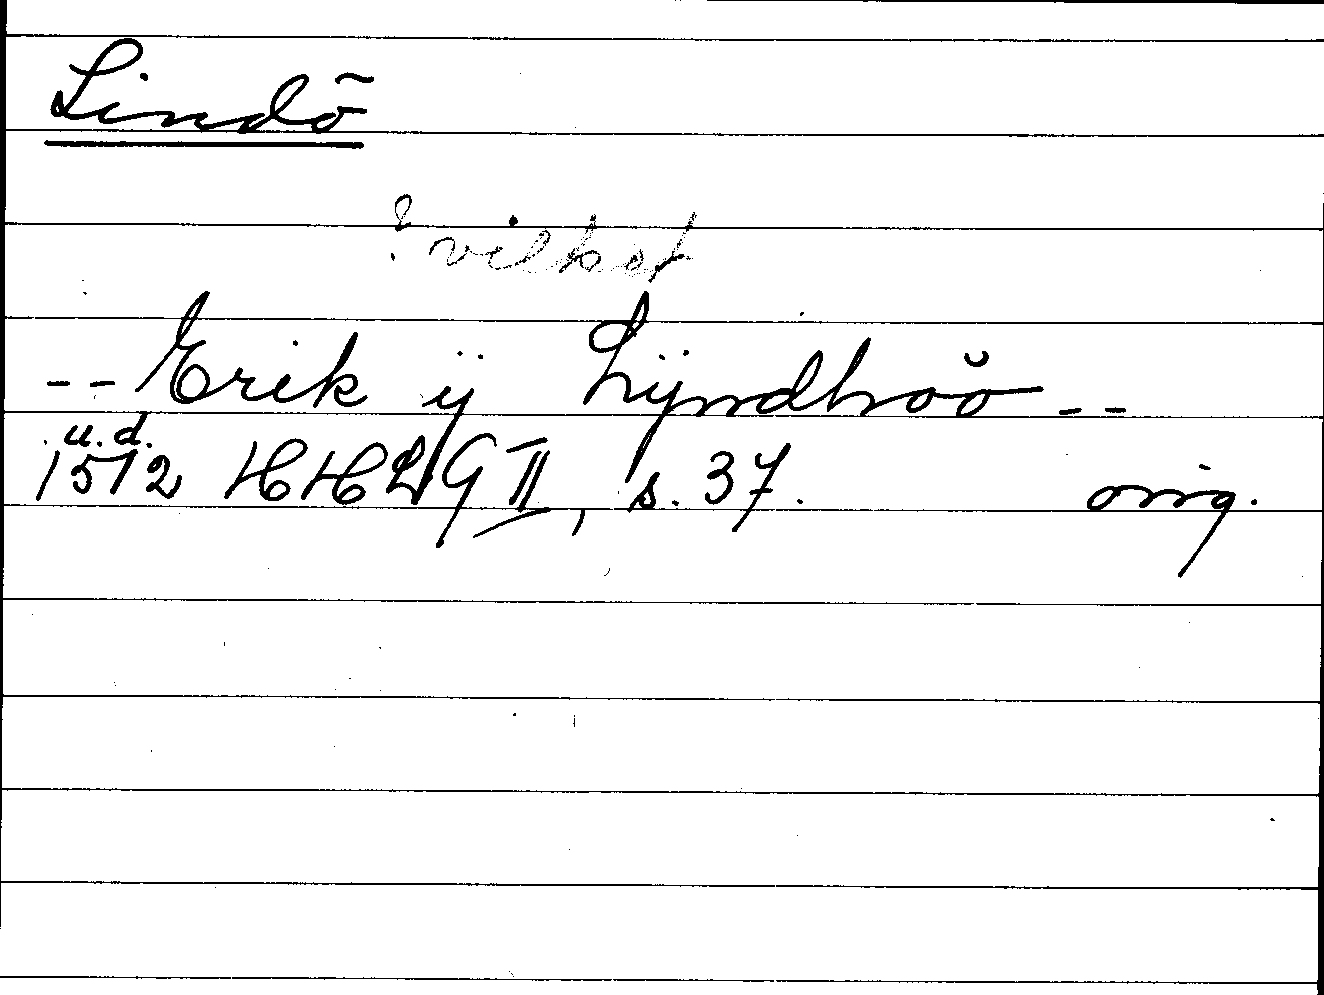 Lindö
? vilket
-- Erik ÿ Lÿndhoö --
u.d.
1512 HHLG II, s. 37. orig.